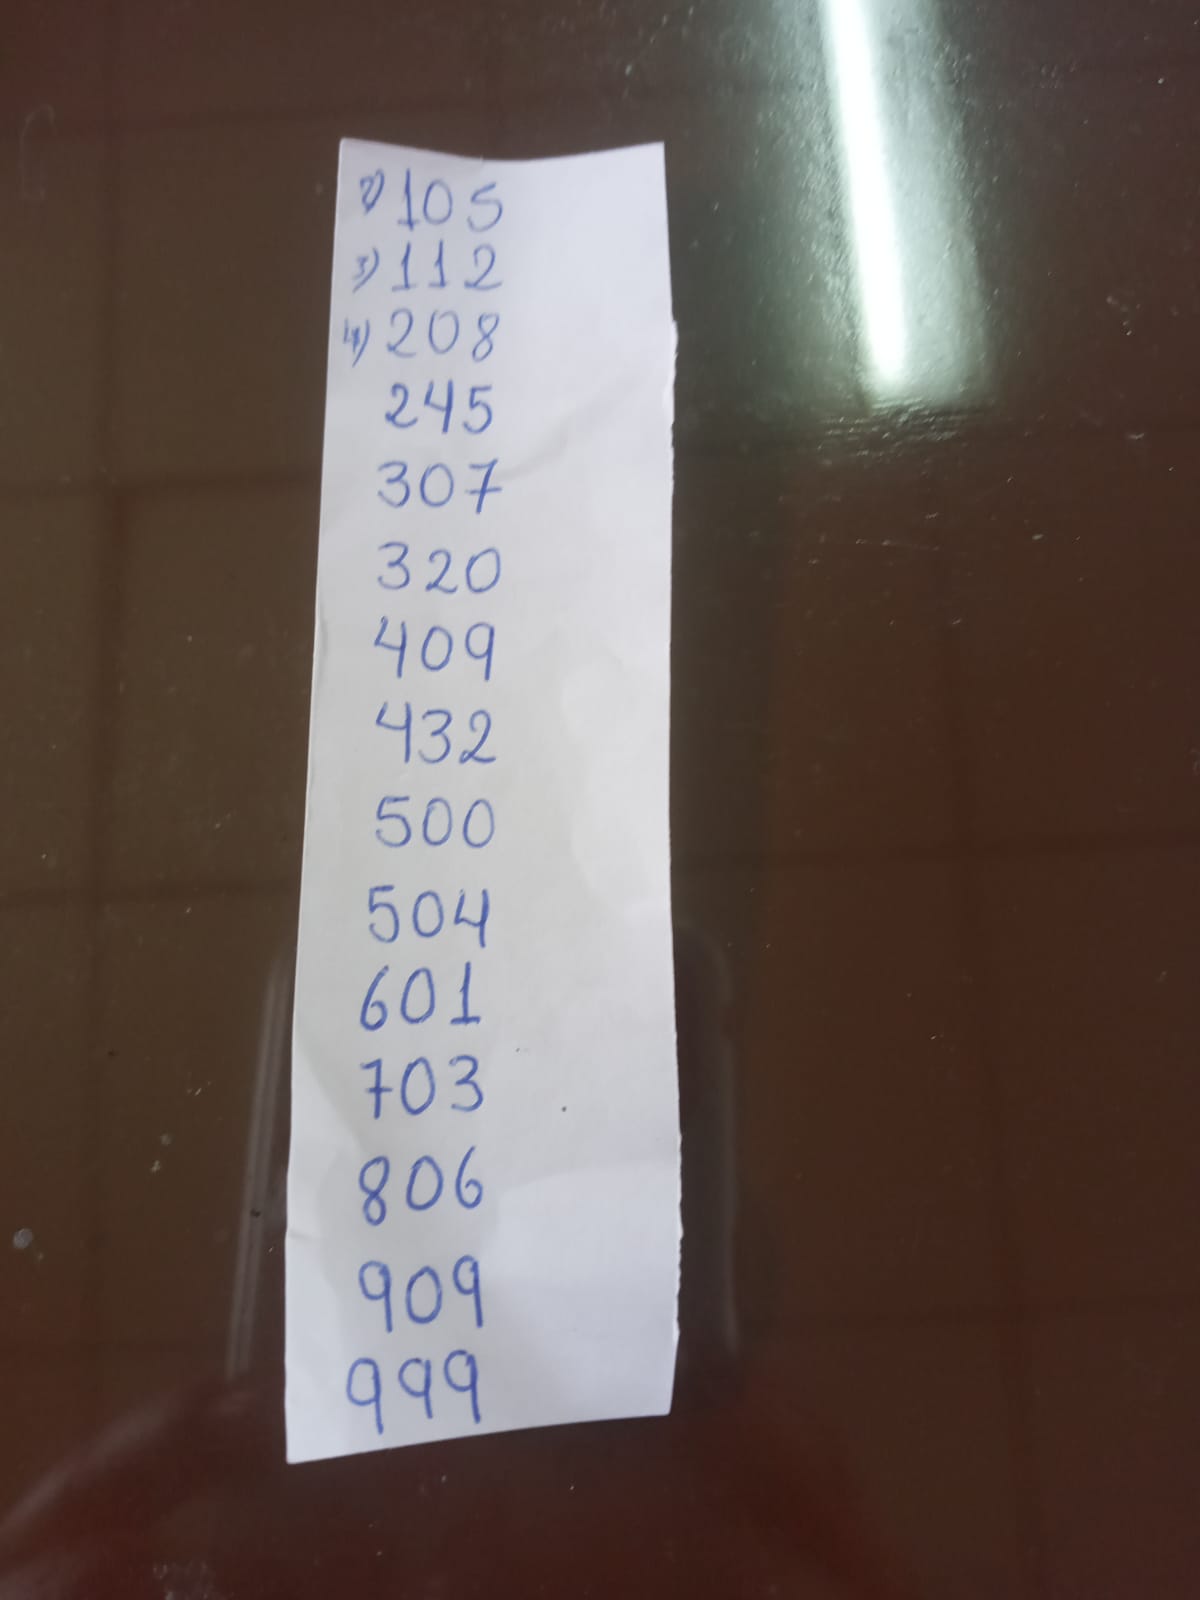 2) 105
3) 112
4) 208
245
307
320
409
432
500
504
601
703
806
909
999